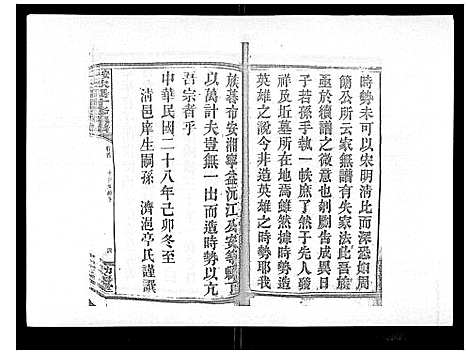 時勢未可以宋明清比而深恐如周
簡公所云家無譜有失家法此吾族
亟於續譜之微意也剞劂告成異日
子若孫手執一帙庶了然於先人發
祥及近墓所在地焉雖然據時勢造
英雄之說今非造英雄之時勢耶我
族蕃市安湘寧益沅江及安等縣丁
以萬計夫豈無一出而造時勢以亢
吾宗者乎
中華民國二十八年己卯冬至
清邑庠生嗣孫 濟浥亭氏謹譔